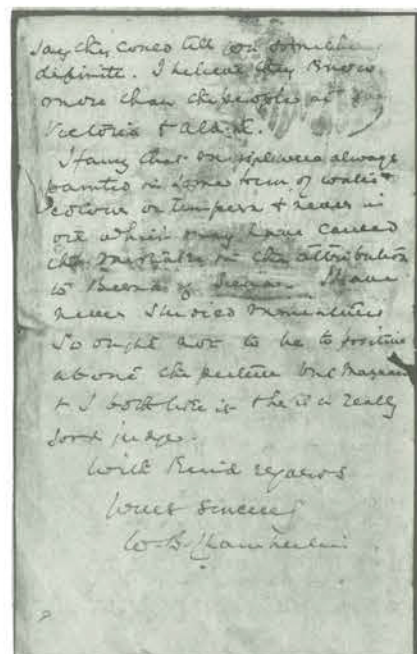 say they could tell you something
definite. I believe they know
more than the people at the
Victoria & Albt.
I fancy that were always
painted in some form of water
colour or tempera & never in
oil which may have caused
the mistake in the attribution
to I have
never studied miniatures
so ought not to be to positive
about the picture but
& I both like it & he is a really
good judge.
With kind regards
Yours sincerely
W. B. Chamberlin